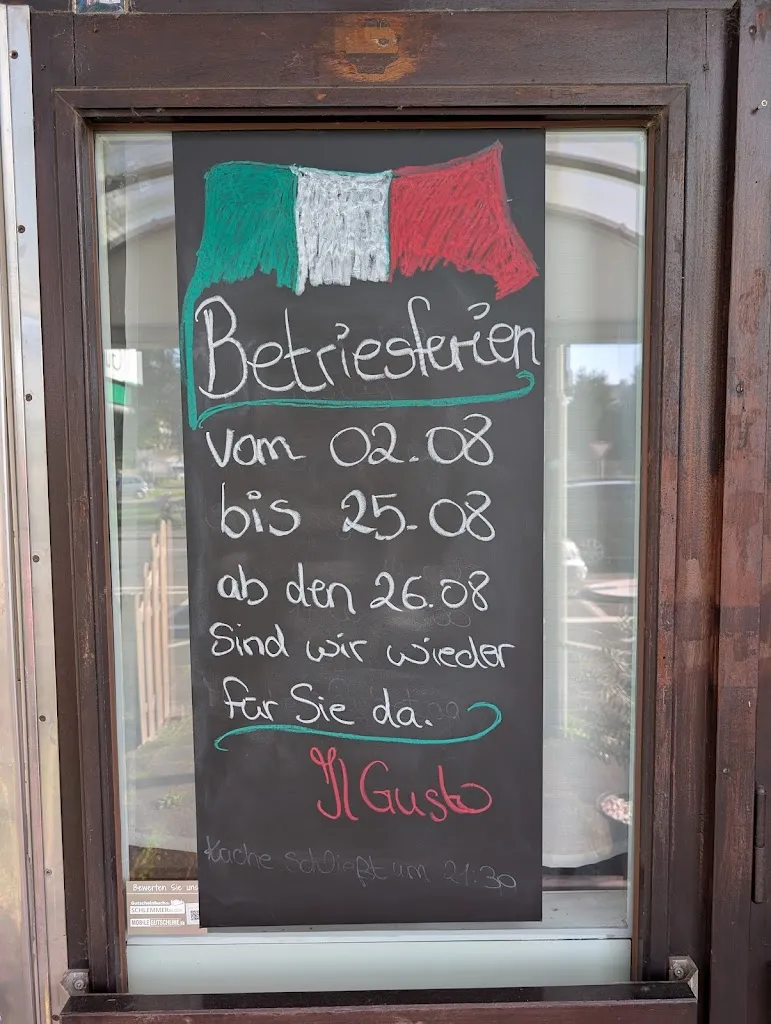 Betriesferien
vom 02.08
bis 25.08
ab den 26.08
Sind wir wieder
für Sie da.
Il Gusto
Küche schließt um 21:30
Bewerten Sie uns
Gutscheinbuch.de
SCHLEMMER
MOBILE GUTSCHEINE.de